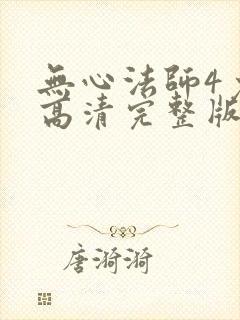 無心法師4
高清完整版
唐漪漪